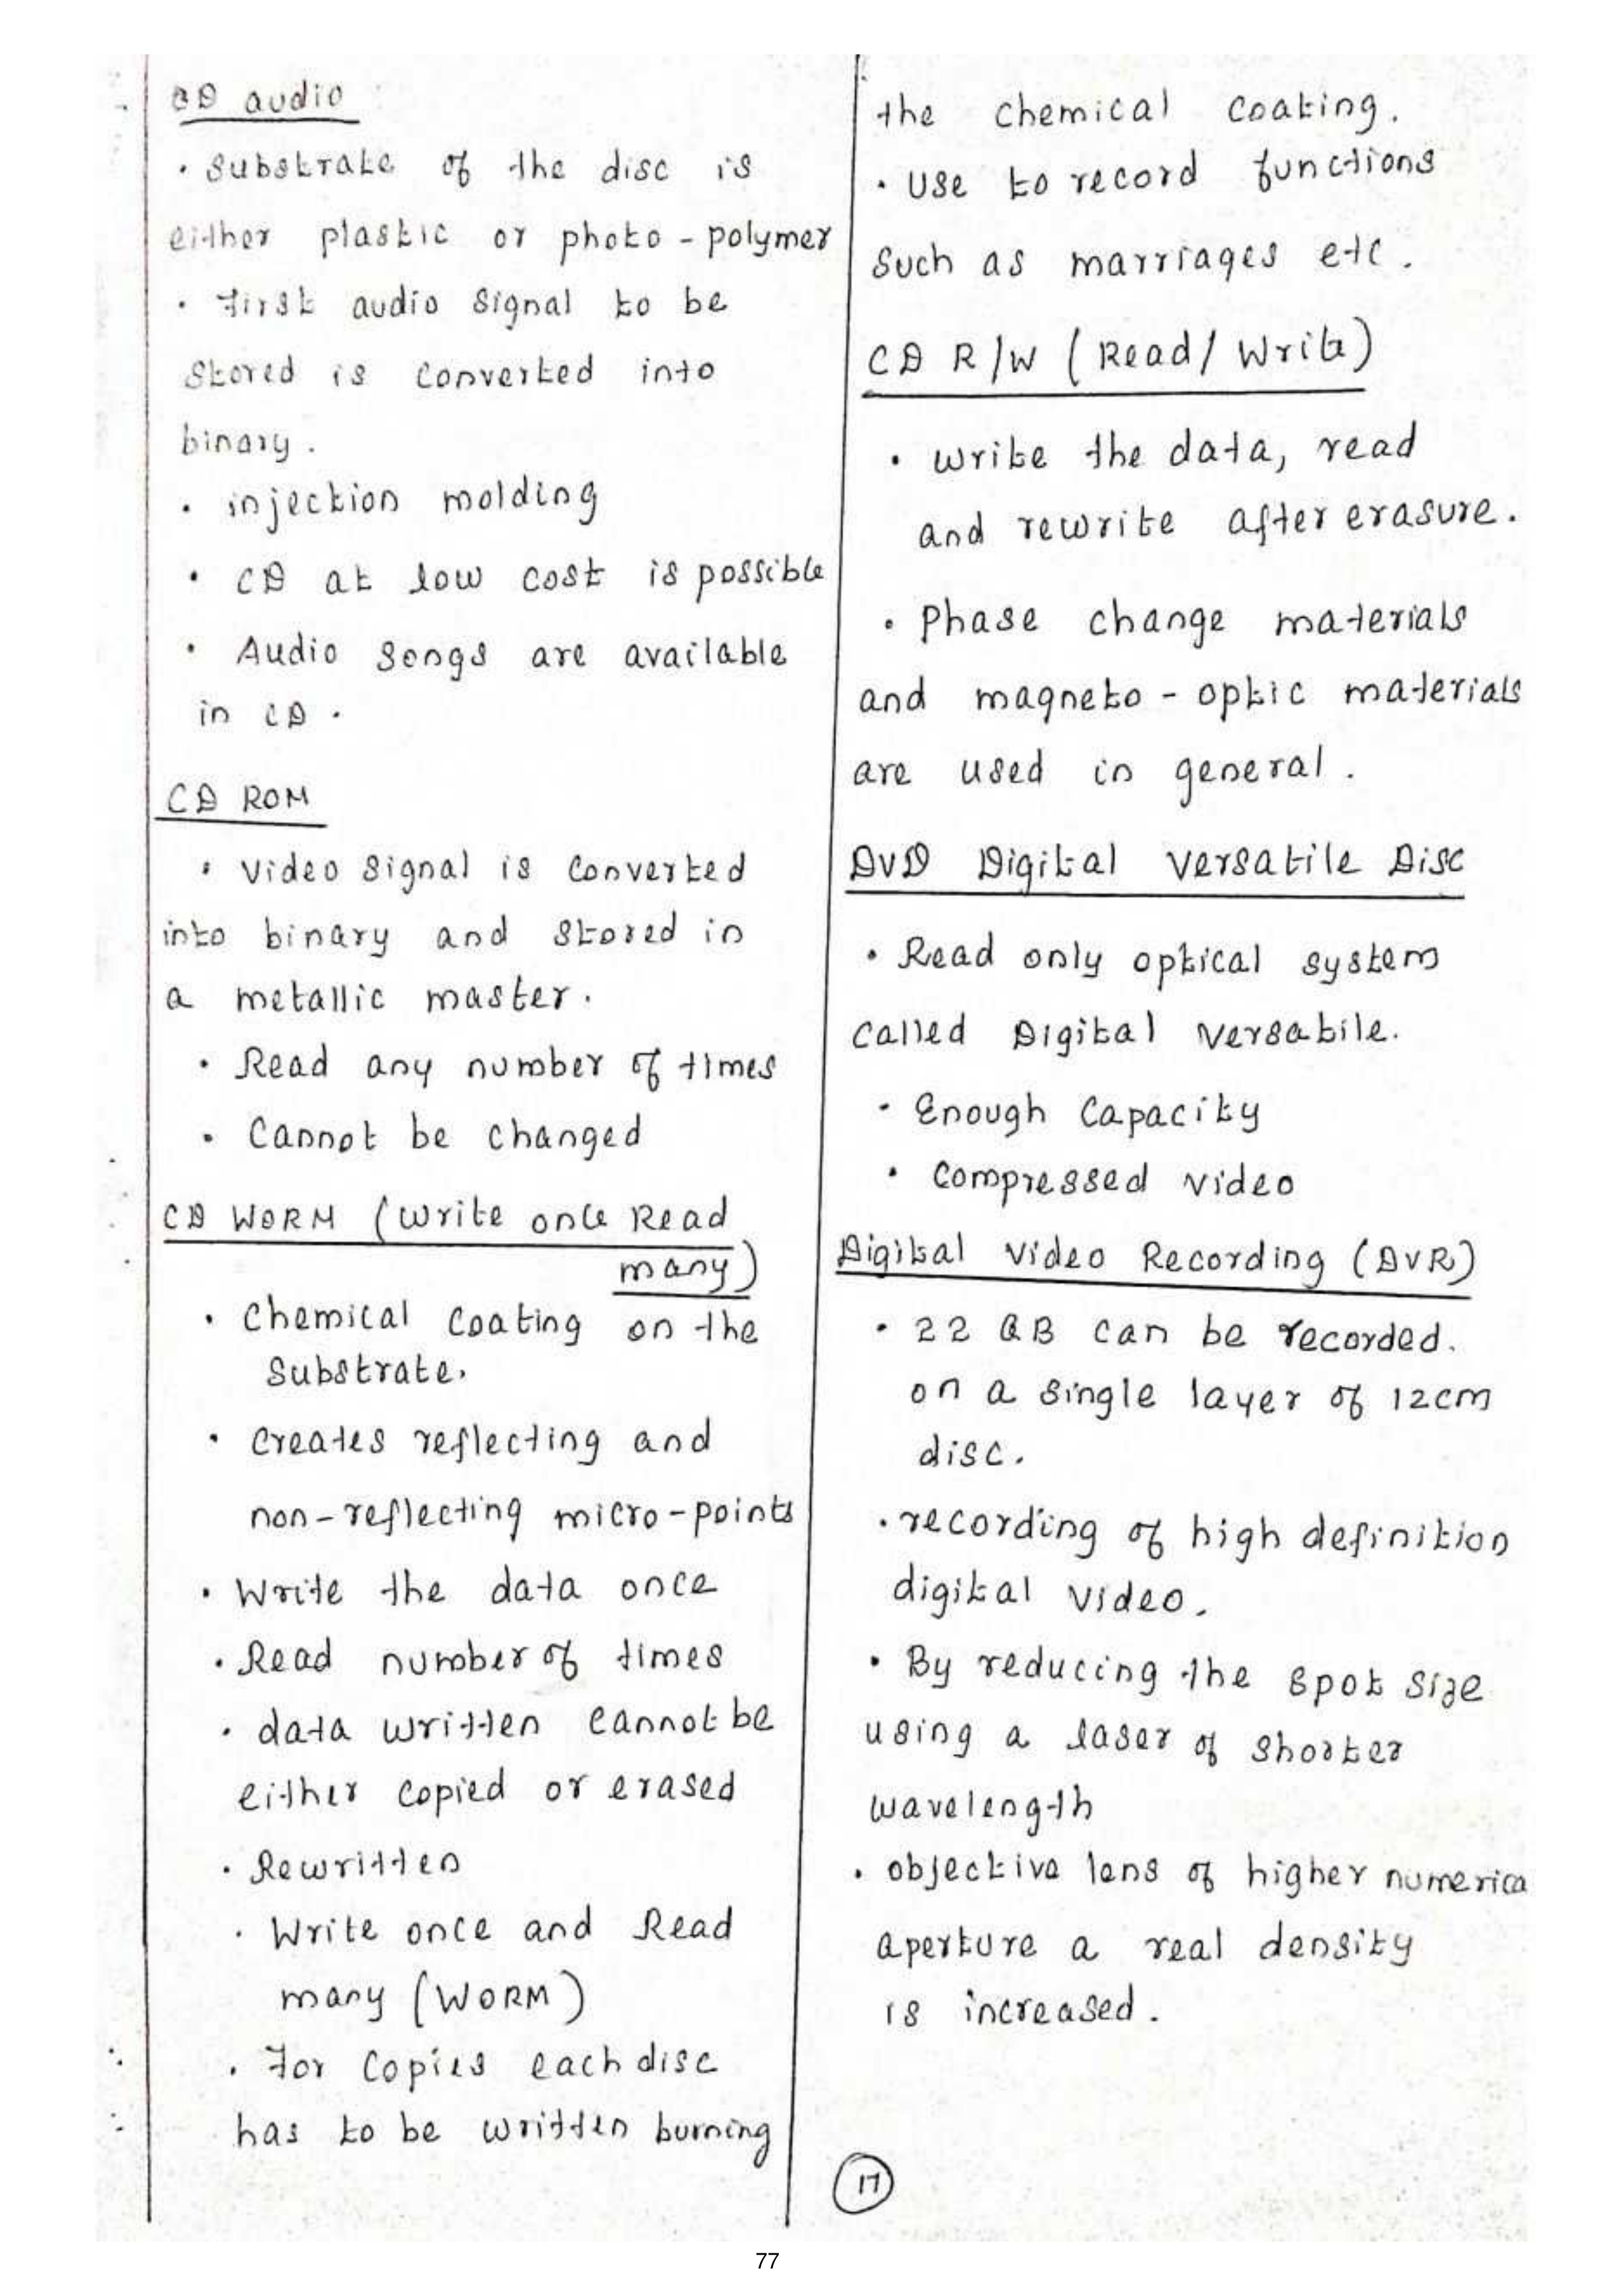 CD audio
· Substrate of the disc is
either plastic or photo - polymer
· First audio signal to be
Stored is converted into
binary.
· injection molding
· CD at low cost is possible
· Audio songs are available
in CD.
CD ROM
· Video signal is converted
into binary and stored in
a metallic master.
· Read any number of times
· Cannot be changed
CD WORM (Write once Read
many)
· Chemical coating on the
Substrate.
· Creates reflecting and
non-reflecting micro-points
· Write the data once
· Read number of times
· data written cannot be
either copied or erased
· Rewritten
· Write once and Read
many (WORM)
· For copies each disc
has to be written burning
the chemical coating.
· Use to record functions
Such as marriages etc.
CD R/W (Read/Write)
· Write the data, read
and rewrite after erasure.
· Phase change materials
and magneto - optic materials
are used in general.
DVD Digital Versatile Disc
· Read only optical system
Called Digital Versatile.
· Enough Capacity
· Compressed video
Digital Video Recording (DVR)
· 22 GB can be recorded.
on a single layer of 12cm
disc.
· recording of high definition
digital video.
· By reducing the spot size
using a laser of shorter
wavelength
· objective lens of higher numerica
aperture a real density
is increased.
17
77